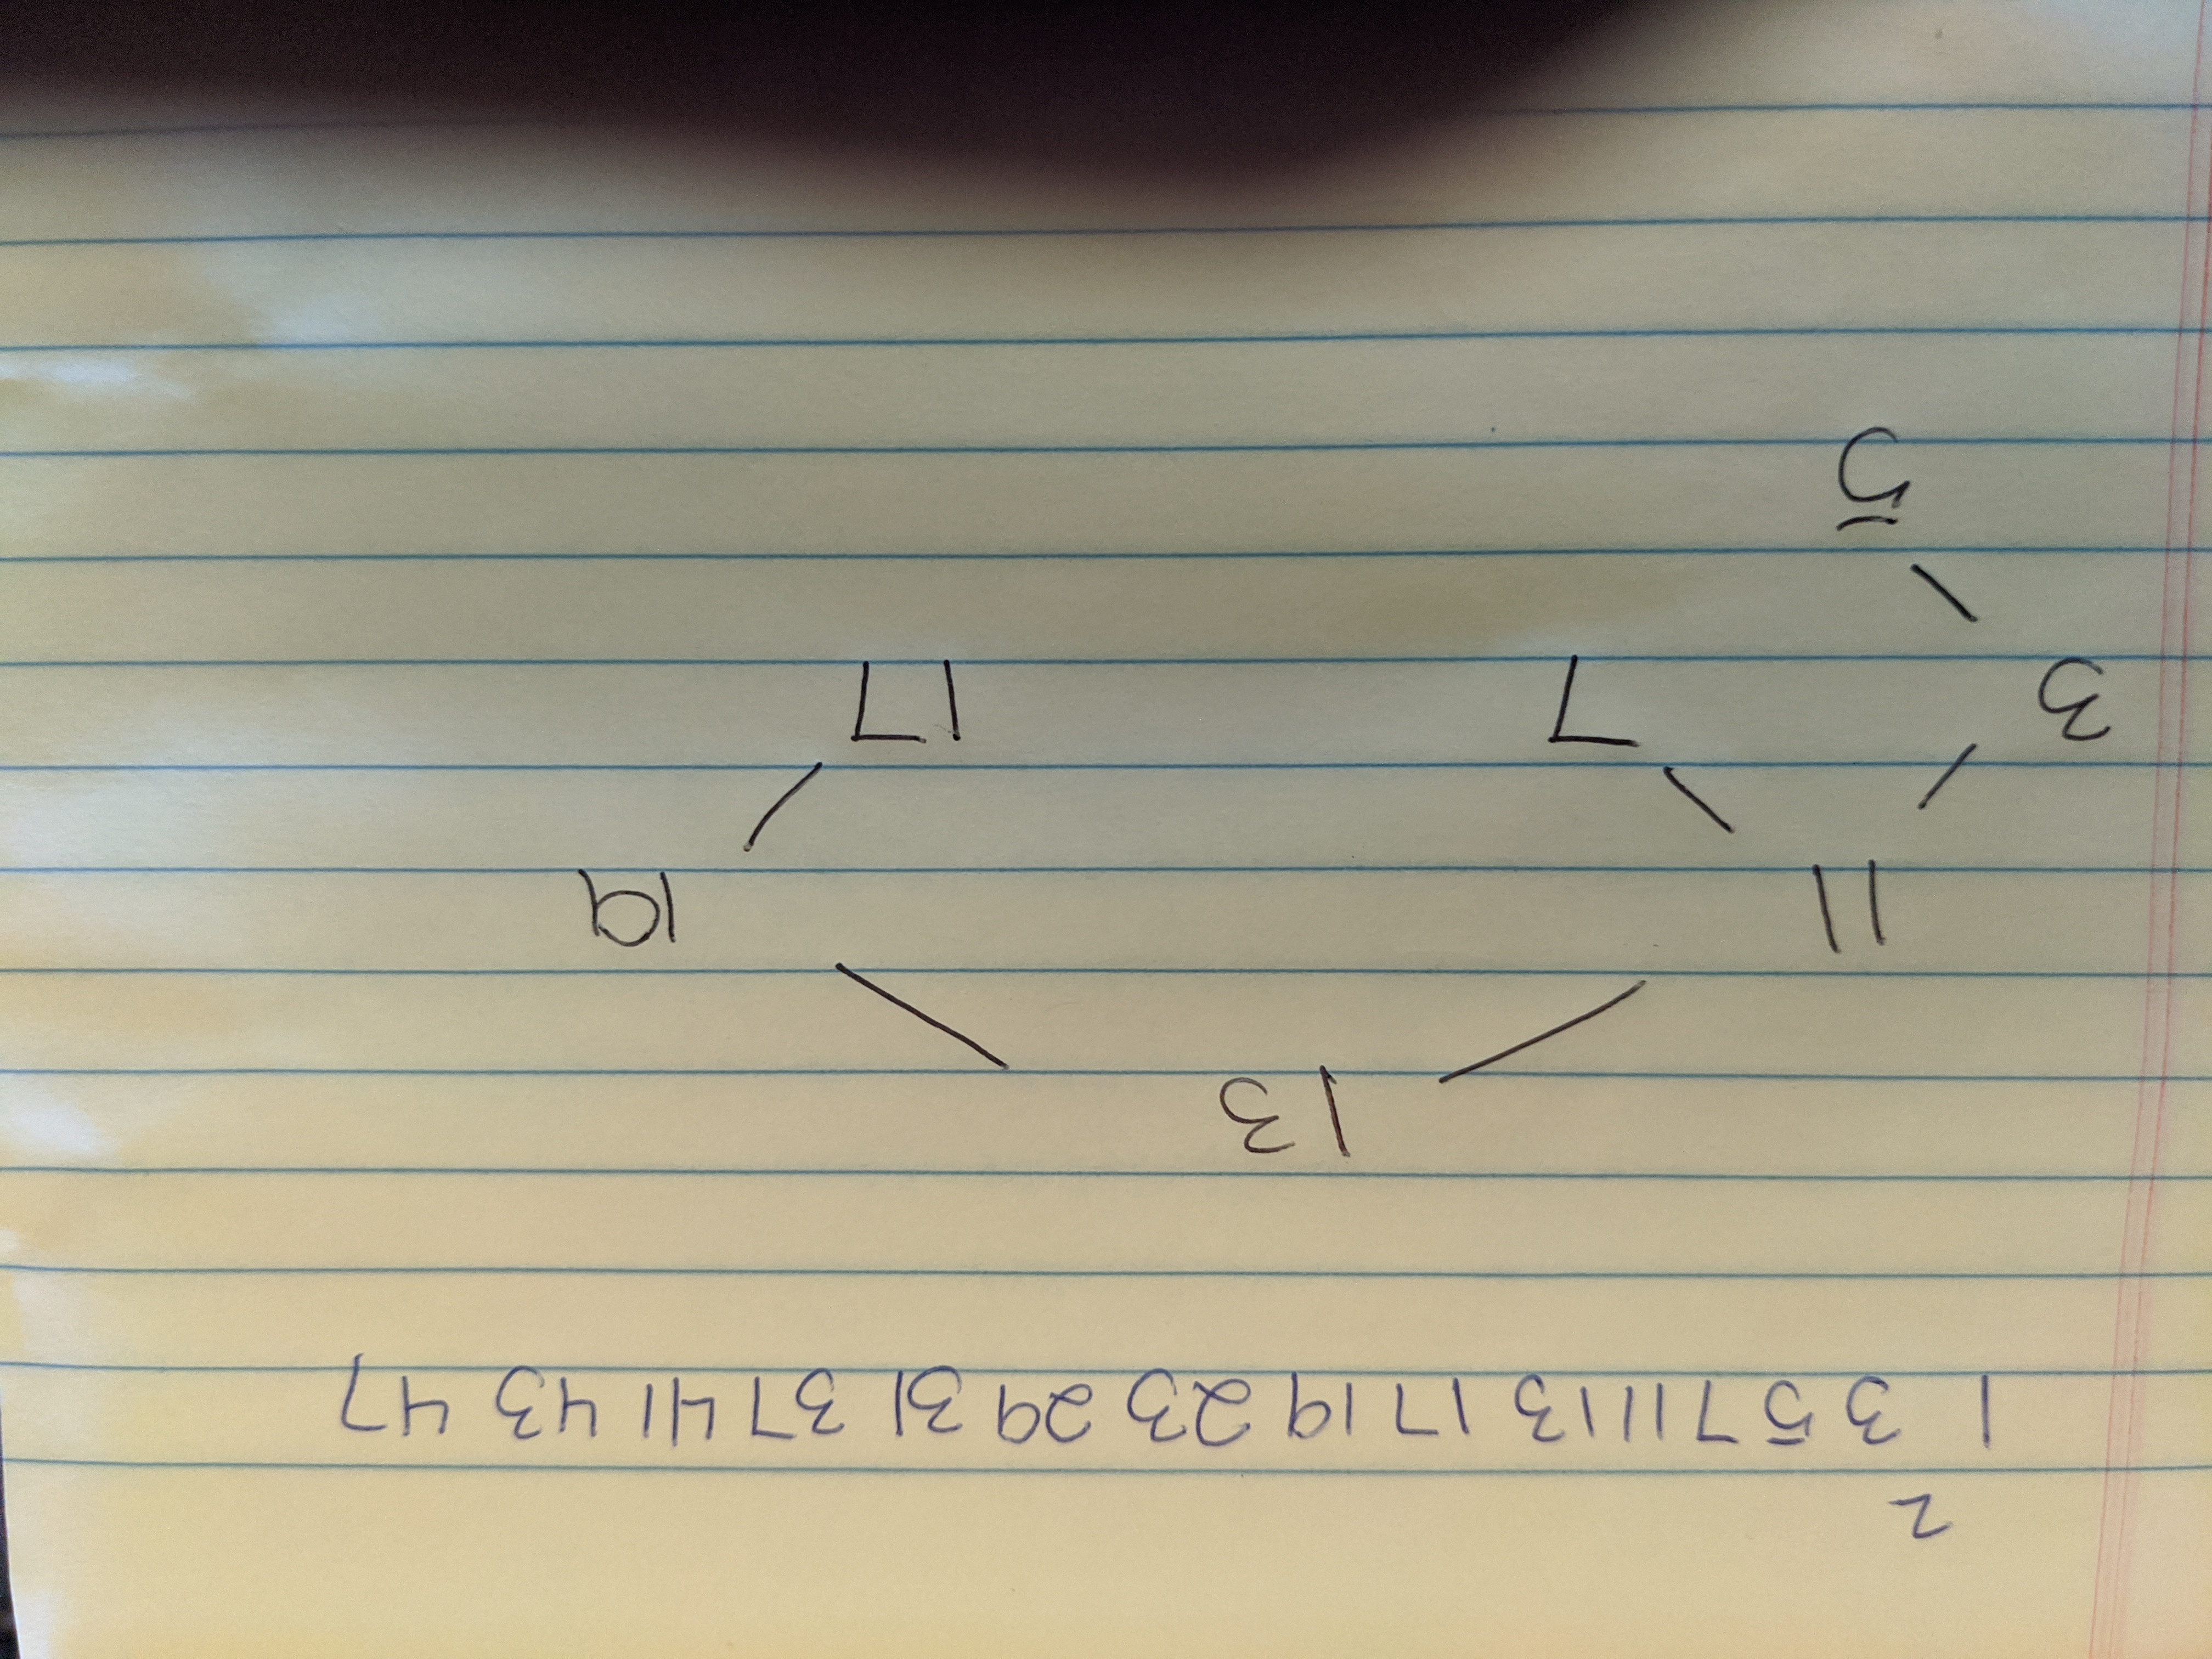 2
1 3 5 7 11 13 17 19 23 29 31 37 41 43 47
13
11 19
3 7 17
5